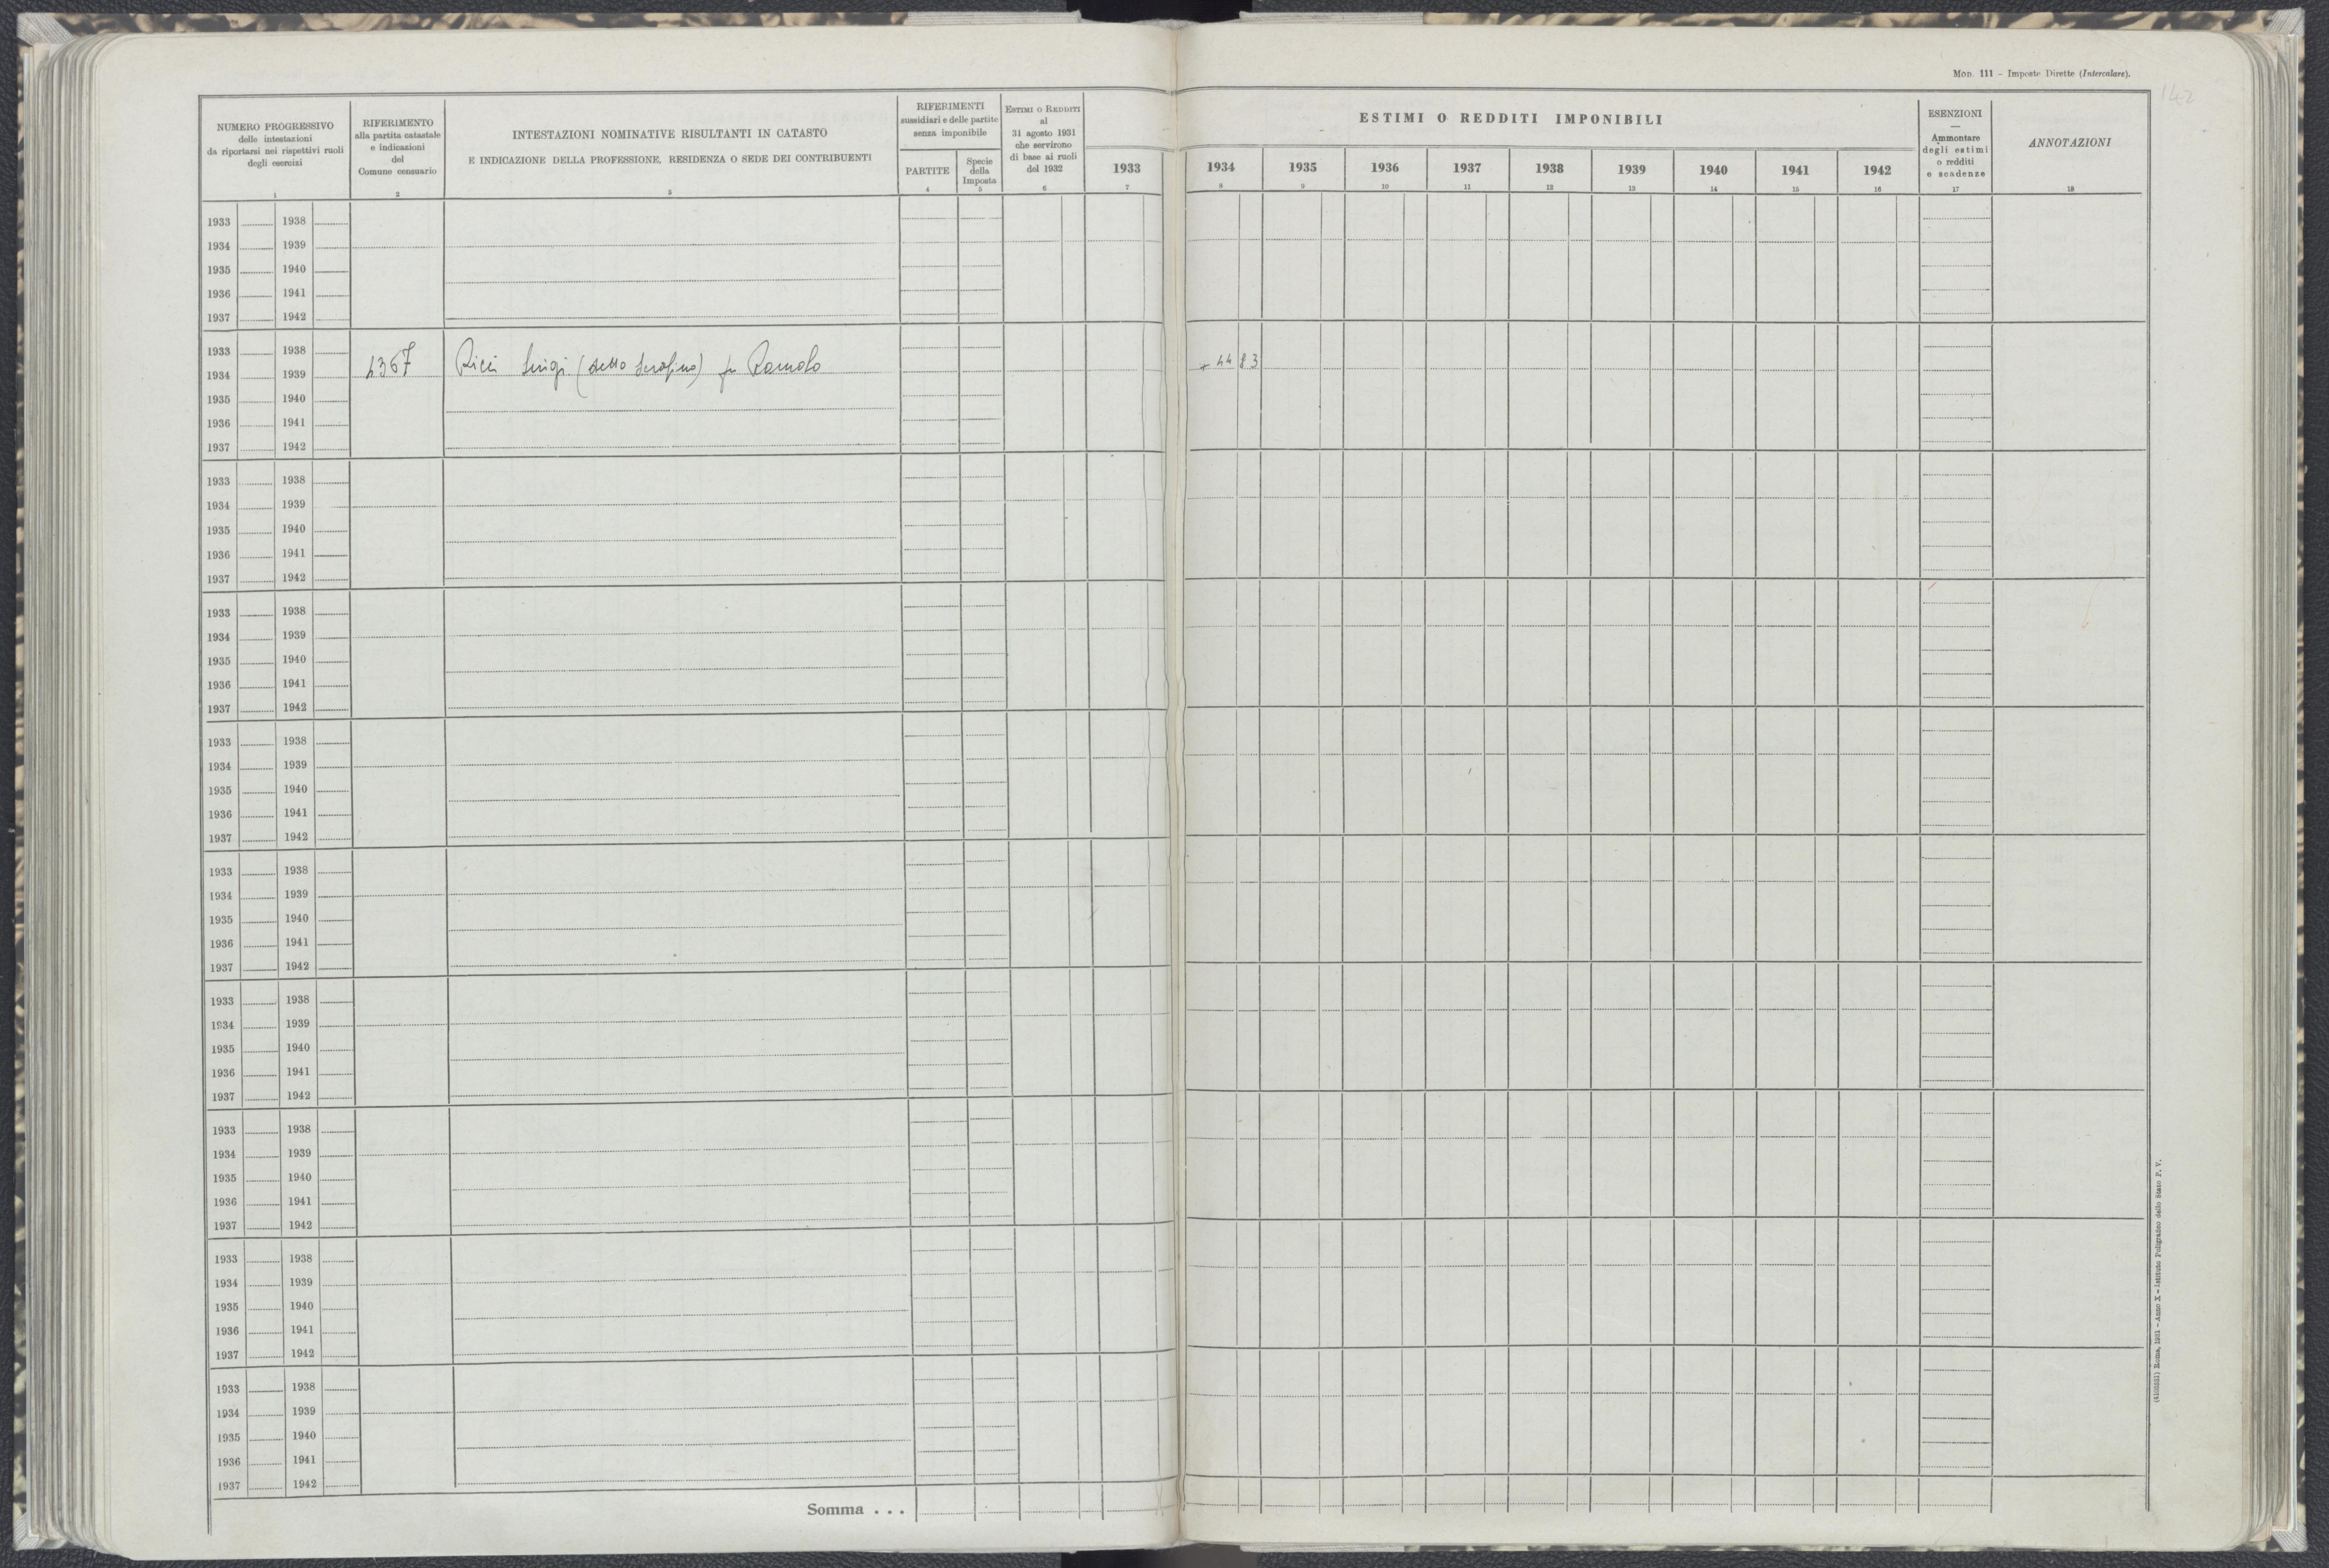 Mod. 111 – Imposte Dirette (Intercalare).
142
NUMERO PROGRESSIVO
delle intestazioni
da riportarsi nei rispettivi ruoli
degli esercizi
1
RIFERIMENTO
alla partita catastale
e indicazioni
del
Comune censuario
2
INTESTAZIONI NOMINATIVE RISULTANTI IN CATASTO
E INDICAZIONE DELLA PROFESSIONE, RESIDENZA O SEDE DEI CONTRIBUENTI
3
RIFERIMENTI
sussidiari e delle partite
senza imponibile
PARTITE
4
Specie
della
Imposta
5
Estimi o Redditi
al
31 agosto 1931
che servirono
di base ai ruoli
del 1932
6
1933
7
ESTIMI O REDDITI IMPONIBILI
1934 1935 1936 1937 1938 1939 1940 1941 1942
8 9 10 11 12 13 14 15 16
ESENZIONI
—
Ammontare
degli estimi
o redditi
e scadenze
17
ANNOTAZIONI
18
1933 1938
1934 1939
1935 1940
1936 1941
1937 1942
1933 1938
4367 Ricci Luigi (detto Serafino) fu Romolo + 44 83
1934 1939
1935 1940
1936 1941
1937 1942
1933 1938
1934 1939
1935 1940
1936 1941
1937 1942
1933 1938
1934 1939
1935 1940
1936 1941
1937 1942
1933 1938
1934 1939
1935 1940
1936 1941
1937 1942
1933 1938
1934 1939
1935 1940
1936 1941
1937 1942
1933 1938
1934 1939
1935 1940
1936 1941
1937 1942
1933 1938
1934 1939
1935 1940
1936 1941
1937 1942
1933 1938
1934 1939
1935 1940
1936 1941
1937 1942
1933 1938
1934 1939
1935 1940
1936 1941
1937 1942
Somma . . .
Roma, 1931 – Anno X – Istituto Poligrafico dello Stato P. V.